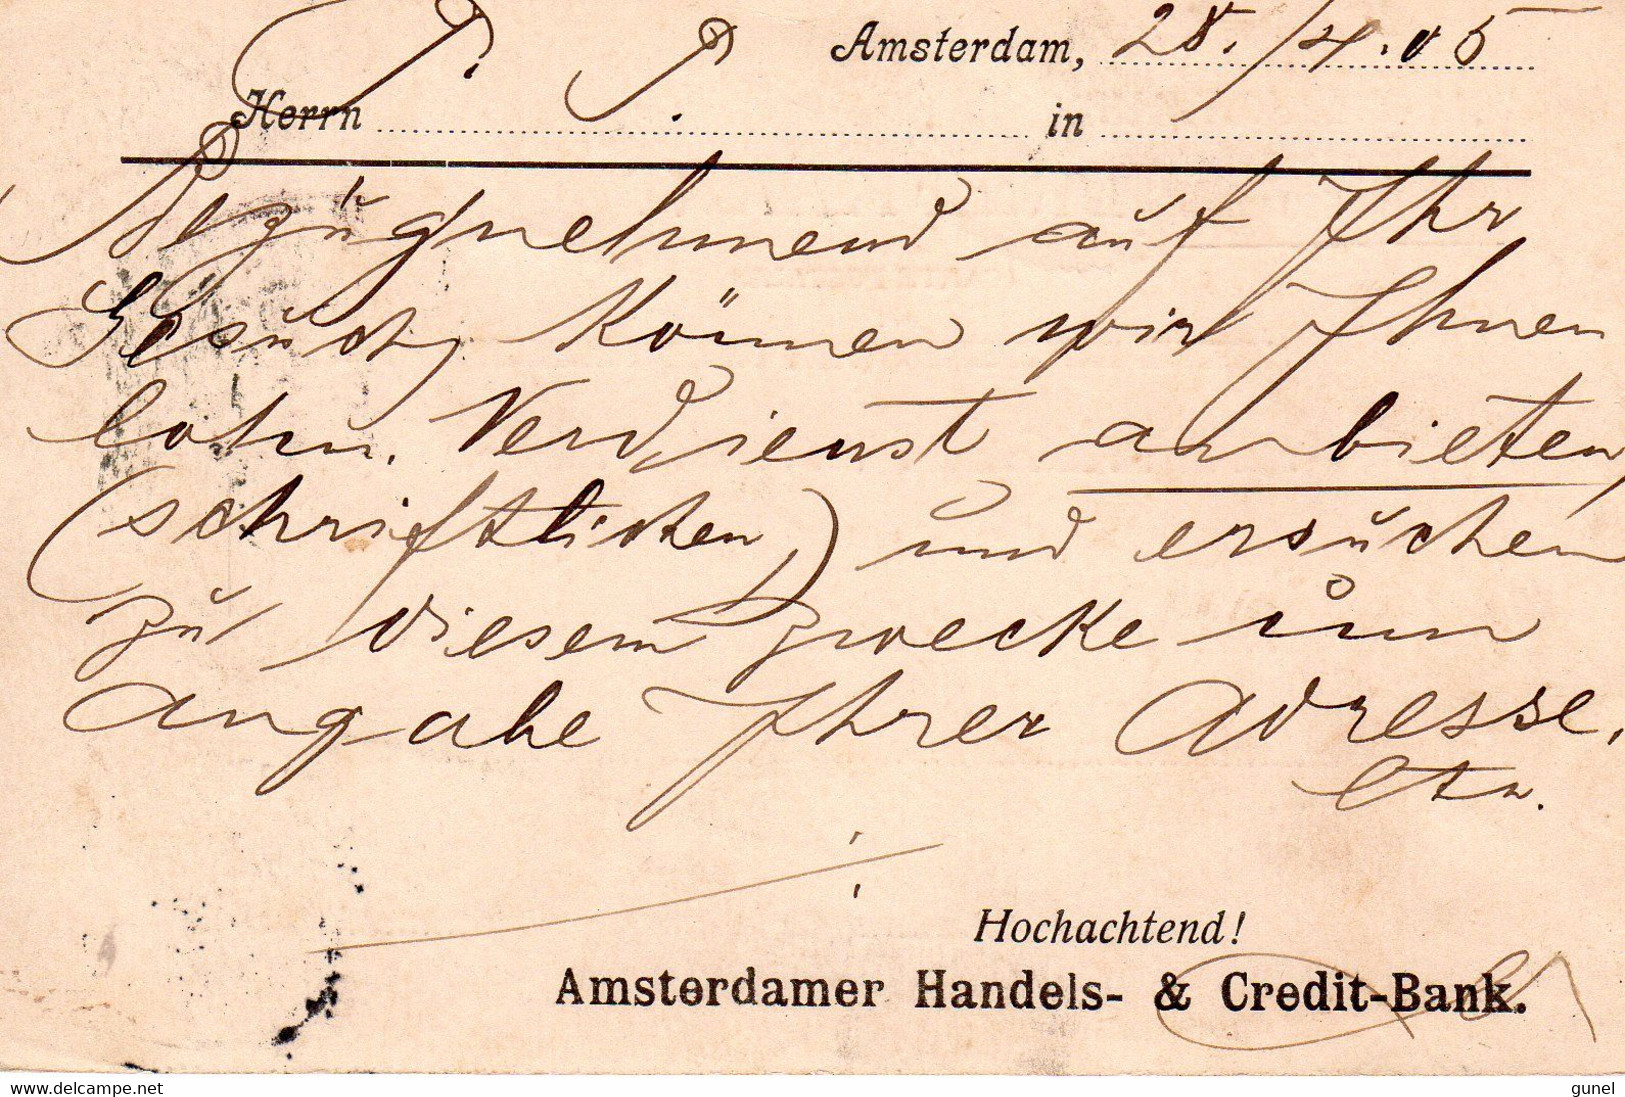 Amsterdam, 28./4.05
P. P.
Herrn in
Bezugnehmend auf Ihr
Gesuch, können wir Ihnen
lohn. Verdienst anbieten
(schriftlichen) und ersuchen
zu diesem Zwecke um
Angabe Ihrer Adresse.
etw.
Hochachtend!
Amsterdamer Handels- & Credit-Bank.
www.delcampe.net
gunel